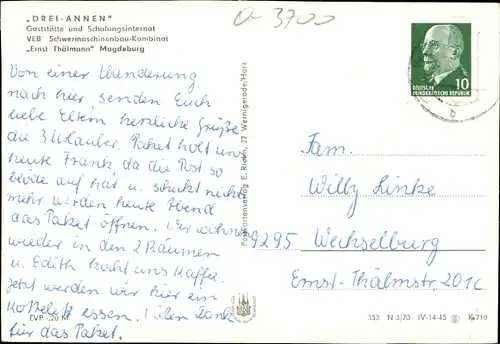 „DREI-ANNEN“
Gaststätte und Schulungsinternat
VEB Schwermaschinenbau-Kombinat
„Ernst Thälmann“ Magdeburg
3700
DEUTSCHE
DEMOKRATISCHE REPUBLIK
10
b
Von einer Wanderung
nach hier, senden Euch
liebe Eltern herzliche Grüße
die 3 Urlauber. Paket holt uns
heute Frank da die Post so
blöde auf hat u. schickt nichts
mehr, werden heute Abend
das Paket öffnen. Wir wohnen
wieder in den 2 Räumen
u. Edith kocht uns Kaffee.
Jetzt werden wir hier ein
Kottelett essen. Vielen Dank
für das Paket.
EVP -,20 M
Postkartenverlag E. Riehn, 37 Wernigerode/Harz
Fam.
Willy Linke
9295 Wechselburg
Ernst-Thälmstr. 201c
353 N 3/70 IV-14-45 K 710